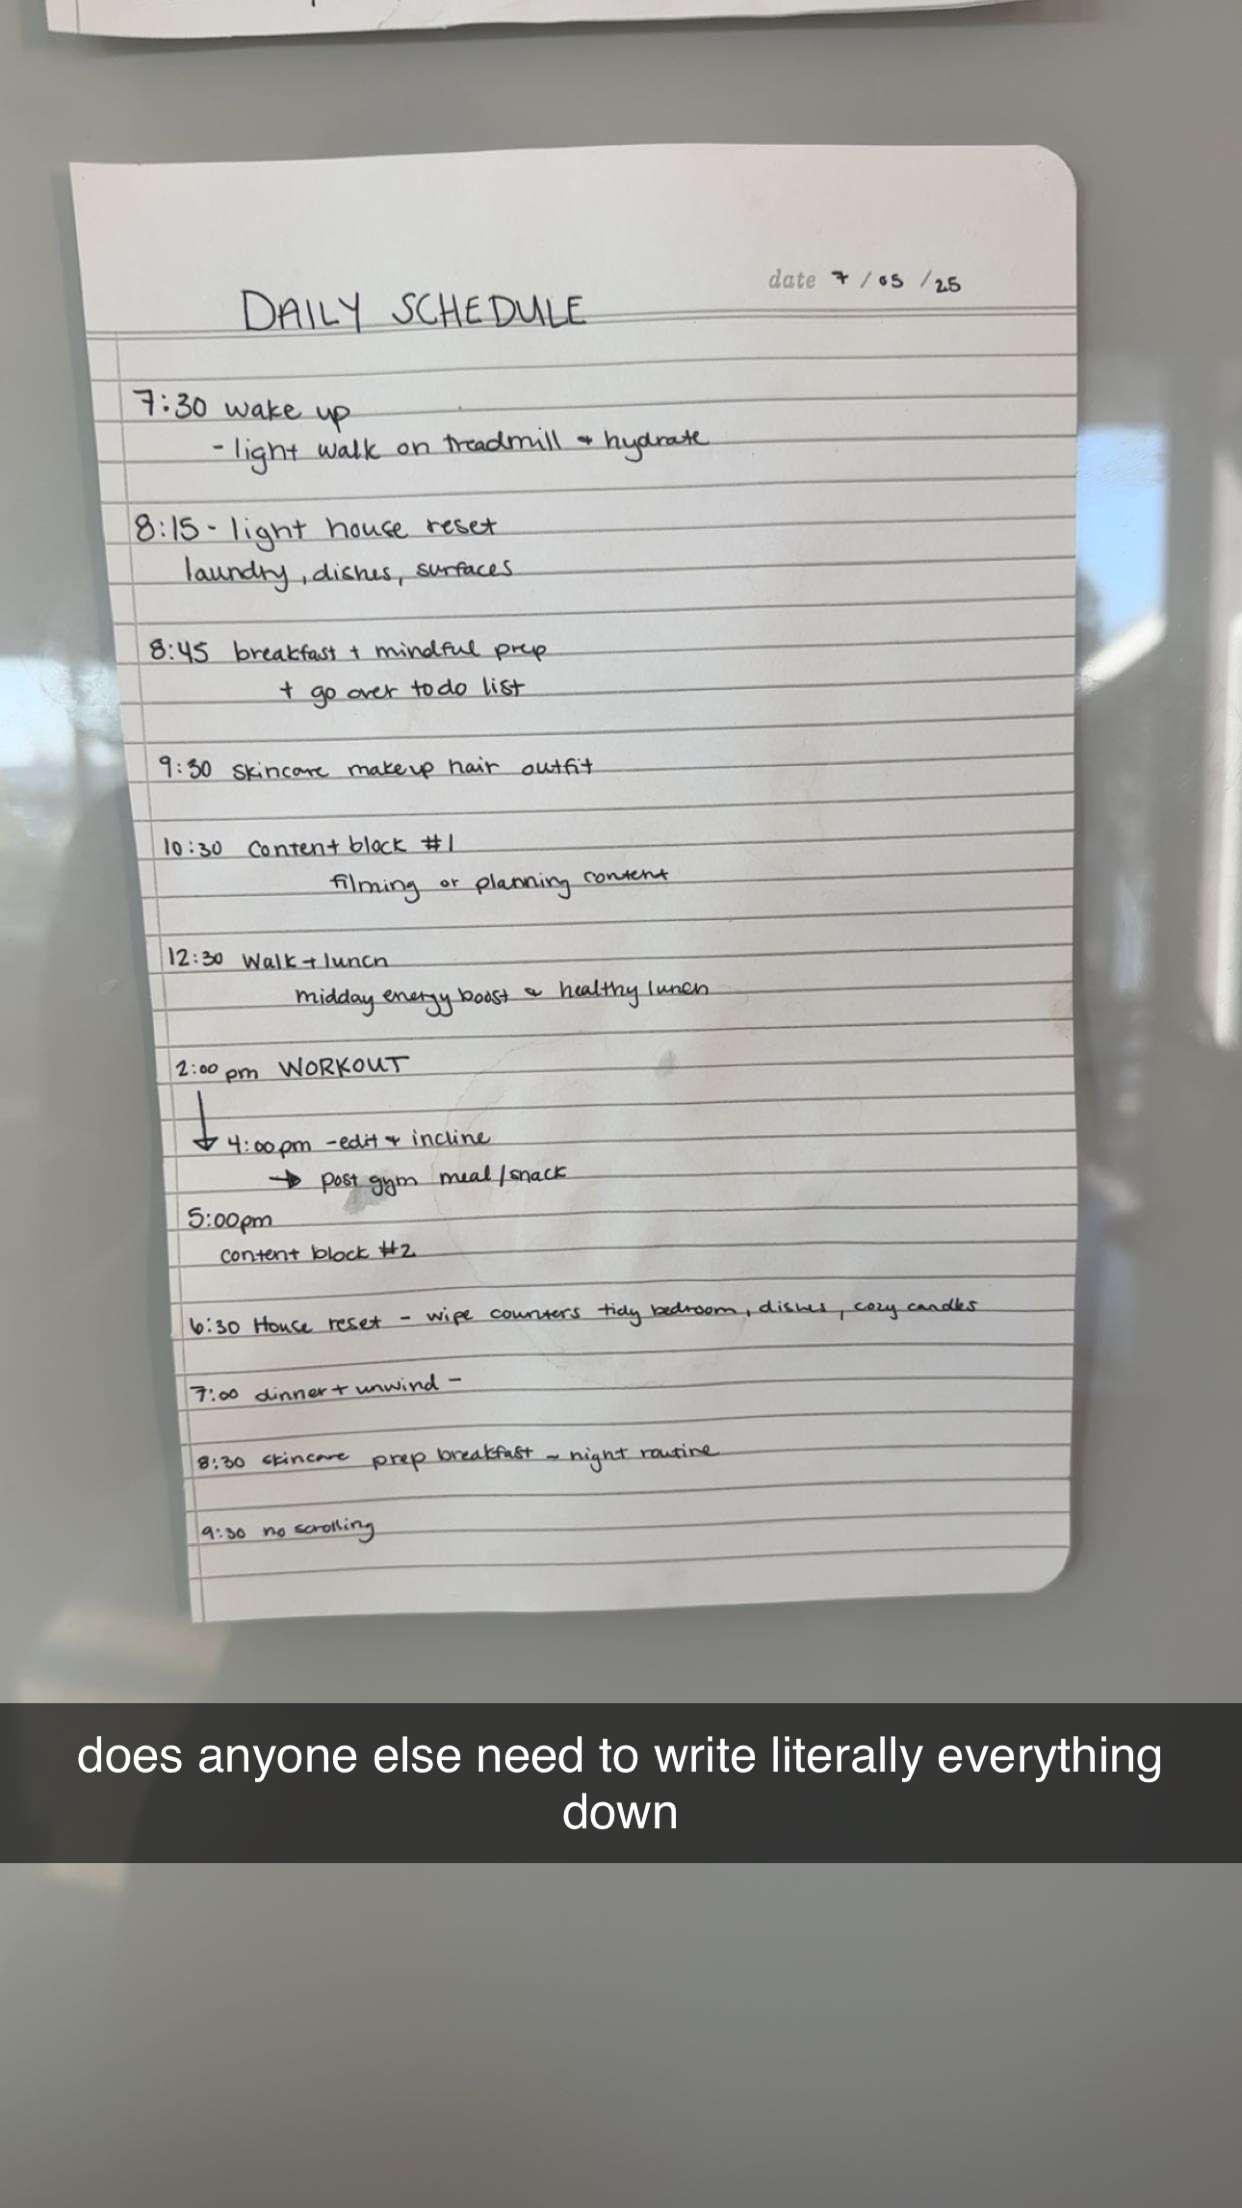 date 7 / 05 / 25
DAILY SCHEDULE
7:30 wake up
- light walk on treadmill + hydrate
8:15 - light house reset
laundry, dishes, surfaces
8:45 breakfast + mindful prep
+ go over to do list
9:30 skincare makeup hair outfit
10:30 content block #1
filming or planning content
12:30 Walk + lunch
midday energy boost & healthy lunch
2:00 pm WORKOUT
↓ 4:00pm - edit + incline
→ post gym meal/snack
5:00pm
content block #2
6:30 House reset - wipe counters tidy bedroom, dishes, cozy candles
7:00 dinner + unwind -
8:30 skincare prep breakfast ~ night routine
9:30 no scrolling
does anyone else need to write literally everything
down